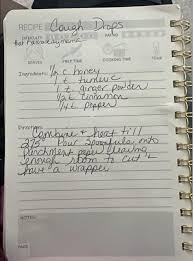 RECIPE Cough Drops
DIFFICULTY RATING
SERVES PREP TIME COOKING TIME
Ingredients: 1/2 c honey
1 t. tumeric
1 t. ginger powder
1/2 t. cinnamon
1/4 t. pepper
Directions:
Combine + heat till
275° Pour spoonfuls onto
parchment paper leaving
enough room to cut +
have a wrapper
NOTES:
PAGE